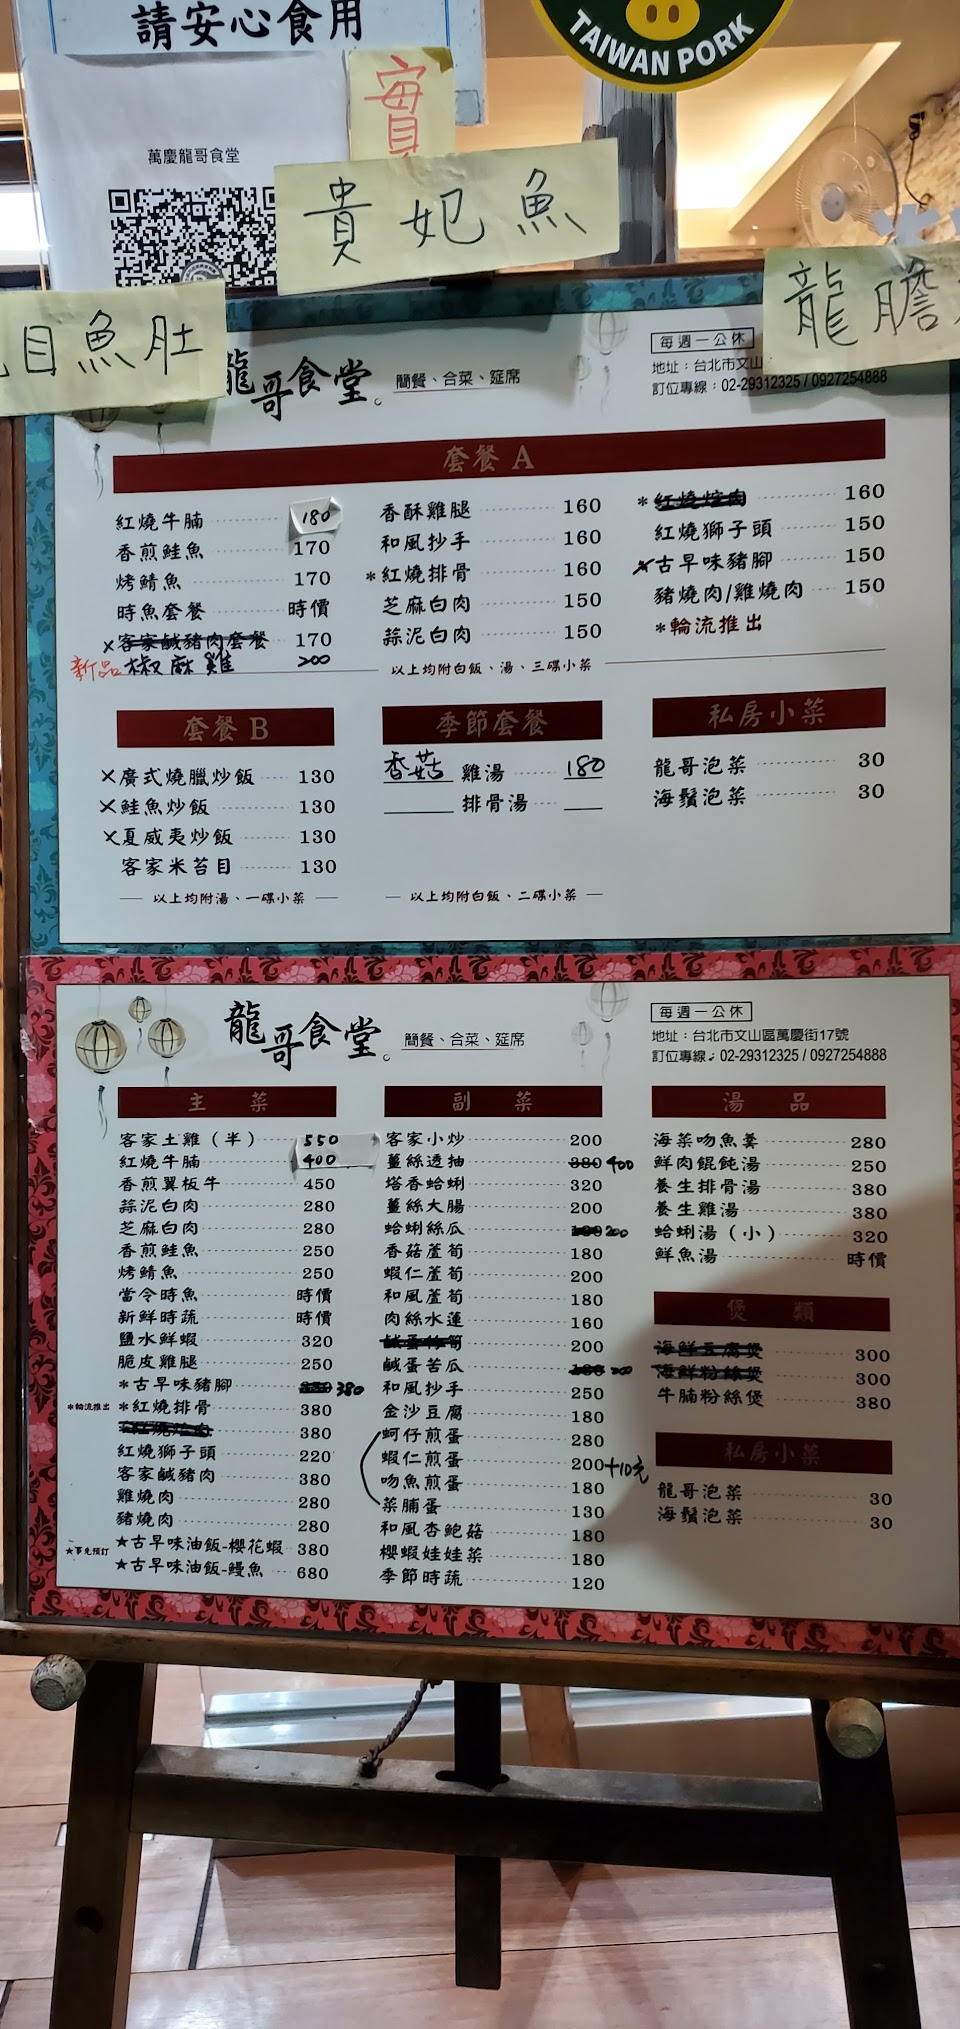 請安心食用
TAIWAN PORK
萬慶龍哥食堂
實
貴妃魚
目魚肚
龍膽
龍哥食堂
簡餐、合菜、筵席
每週一公休
地址：台北市文山
訂位專線：02-29312325 / 0927254888
套餐 A
紅燒牛腩 180
香煎鮭魚 170
烤鯖魚 170
時魚套餐 時價
×客家鹹豬肉套餐 170
新品 椒麻雞 200
香酥雞腿 160
和風抄手 160
*紅燒排骨 160
芝麻白肉 150
蒜泥白肉 150
*紅燒焢肉 160
紅燒獅子頭 150
*古早味豬腳 150
豬燒肉/雞燒肉 150
*輪流推出
以上均附白飯、湯、三碟小菜
套餐 B
×廣式燒臘炒飯 130
×鮭魚炒飯 130
×夏威夷炒飯 130
客家米苔目 130
以上均附湯、一碟小菜
季節套餐
香菇 雞湯 180
排骨湯
以上均附白飯、二碟小菜
私房小菜
龍哥泡菜 30
海鬚泡菜 30
龍哥食堂
簡餐、合菜、筵席
每週一公休
地址：台北市文山區萬慶街17號
訂位專線：02-29312325 / 0927254888
主菜
客家土雞（半） 550
紅燒牛腩 400
香煎翼板牛 450
蒜泥白肉 280
芝麻白肉 280
香煎鮭魚 250
烤鯖魚 250
當令時魚 時價
新鮮時蔬 時價
鹽水鮮蝦 320
脆皮雞腿 250
*古早味豬腳 380
*輪流推出 *紅燒排骨 380
380
紅燒獅子頭 220
客家鹹豬肉 380
雞燒肉 280
豬燒肉 280
★事先預訂 ★古早味油飯-櫻花蝦 380
★古早味油飯-鰻魚 680
副菜
客家小炒 200
薑絲透抽 380 400
塔香蛤蜊 320
薑絲大腸 200
蛤蜊絲瓜 200
香菇蘆筍 180
蝦仁蘆筍 200
和風蘆筍 180
肉絲水蓮 160
200
鹹蛋苦瓜 200
和風抄手 250
金沙豆腐 180
蚵仔煎蛋 280
蝦仁煎蛋 200 +10元
吻魚煎蛋 180
菜脯蛋 130
和風杏鮑菇 180
櫻蝦娃娃菜 180
季節時蔬 120
湯品
海菜吻魚羹 280
鮮肉餛飩湯 250
養生排骨湯 380
養生雞湯 380
蛤蜊湯（小） 320
鮮魚湯 時價
煲類
海鮮豆腐煲 300
海鮮粉絲煲 300
牛腩粉絲煲 380
私房小菜
龍哥泡菜 30
海鬚泡菜 30